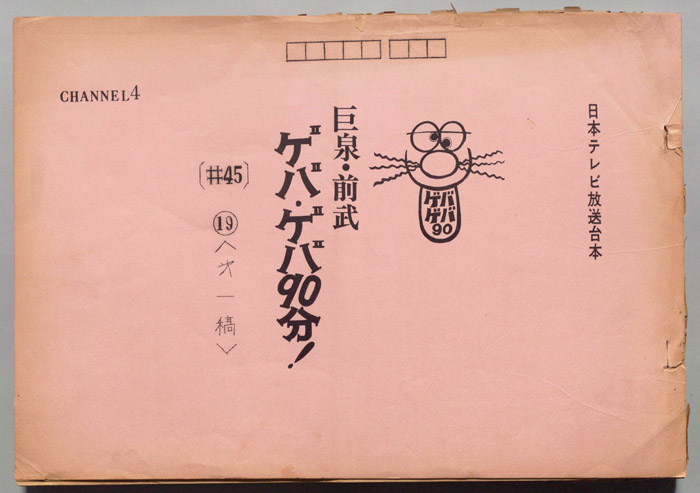 CHANNEL4
日本テレビ放送台本
ゲバ
ゲバ
90
巨泉・前武
ゲバ・ゲバ90分!
〔#45〕
⑲〈㐧一稿〉